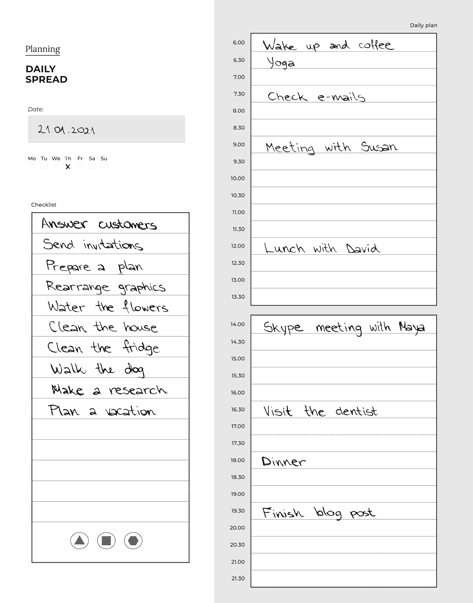 Planning
DAILY
SPREAD
Date:
21.01.2021
Mo Tu We Th Fr Sa Su
x
Checklist
Answer customers
Send invitations
Prepare a plan
Rearrange graphics
Water the flowers
Clean the house
Clean the fridge
Walk the dog
Make a research
Plan a vacation
Daily plan
6.00 Wake up and coffee
6.30 Yoga
7.00
7.30 Check e-mails
8.00
8.30
9.00 Meeting with Susan
9.30
10.00
10.30
11.00
11.30
12.00 Lunch with David
12.30
13.00
13.30
14.00 Skype meeting with Maya
14.30
15.00
15.30
16.00
16.30 Visit the dentist
17.00
17.30
18.00 Dinner
18.30
19.00
19.30 Finish blog post
20.00
20.30
21.00
21.30